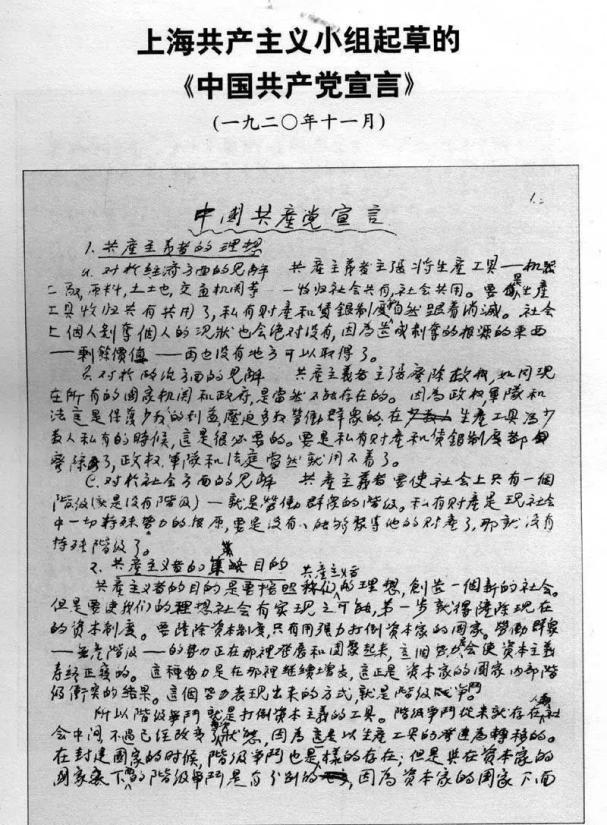 上海共产主义小组起草的
《中国共产党宣言》
(一九二〇年十一月)
1.
中国共産党宣言
1. 共産主義者的理想
a. 对於经济方面的見解 共産主義者主張将生産工具——机器
工厰,原料,土地,交通机関等——收归社会共有,社会共用。要是生産
工具收归共有共用了,私有财産和賃銀制度自然跟着消滅。社会
上個人剥奪個人的現狀也会绝对没有,因為造成剥奪的根源的東西
——剩餘價值——再也没有地方可以取得了。
B. 对於政治方面的見解 共産主義者主張廃除政权,如同現
在所有的国家机関和政府,是當然不能存在的。因為政权軍隊和
法庭是保護少数的利益,壓迫多数勞働群衆的,在生産工具為少
数人私有的時候,這是很必要的。要是私有财産和賃銀制度都
廃除了,政权,軍隊和法庭當然就用不着了。
C. 对於社会方面的見解 共産主義者要使社会上只有一個
階級(就是没有階級)——就是勞働群衆的階級。私有财産是現社会
中一切特殊势力的根原,要是没有人能够聚集他的财産了,那就没有
特殊階級了。
2. 共産主义者的目的
共産主义者的目的是要按照共産主义者的理想,創造一個新的社会。
但是要使我们的理想社会有实現之可能,第一步就得鏟除現在
的資本制度。要鏟除資本制度,只有用强力打倒資本家的国家。勞働群衆
——無産階級——的势力正在那裡發展和團聚起来,這個势力会使資本主義
寿終正寝的。這種势力是在那裡继续增長,這正是資本家的国家内部階
级衝突的结果。這個势力表現出来的方式,就是階级鬥争。
所以階级争鬥就是打倒資本主義的工具。階级争鬥從来就存在人類社
会中间,不過已经改变狀態,因為這是以生産工具的發達為轉移的。
在封建国家的时候,階级争鬥也是様的存在;但是與在資本家的
国家底下的階级争鬥是有分别的,因為資本家的国家下面